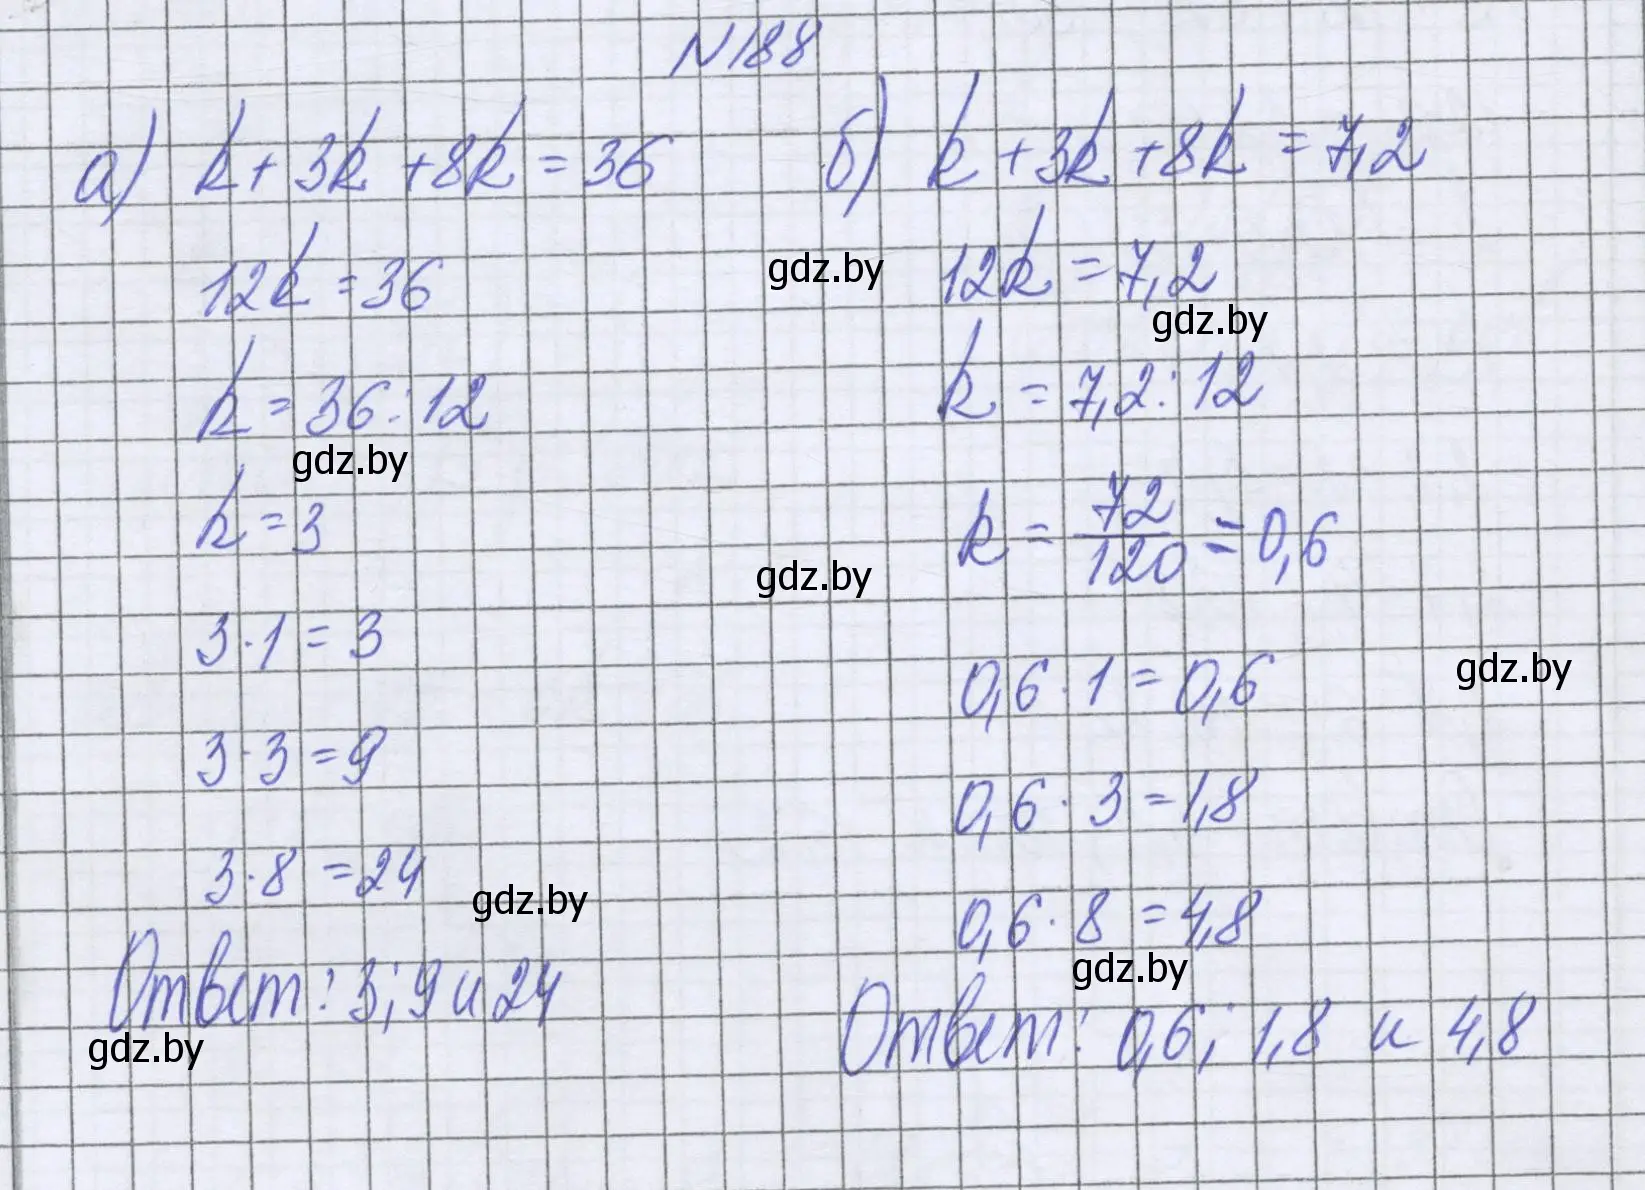 N188
а) k + 3k + 8k = 36
12k = 36
k = 36 : 12
gdz.by
k = 3
3 · 1 = 3
3 · 3 = 9
3 · 8 = 24
gdz.by
Ответ: 3; 9 и 24
gdz.by
б) k + 3k + 8k = 7,2
gdz.by
12k = 7,2
gdz.by
k = 7,2 : 12
k = 72/120 = 0,6
gdz.by
0,6 · 1 = 0,6
gdz.by
0,6 · 3 = 1,8
0,6 · 8 = 4,8
gdz.by
Ответ: 0,6; 1,8 и 4,8